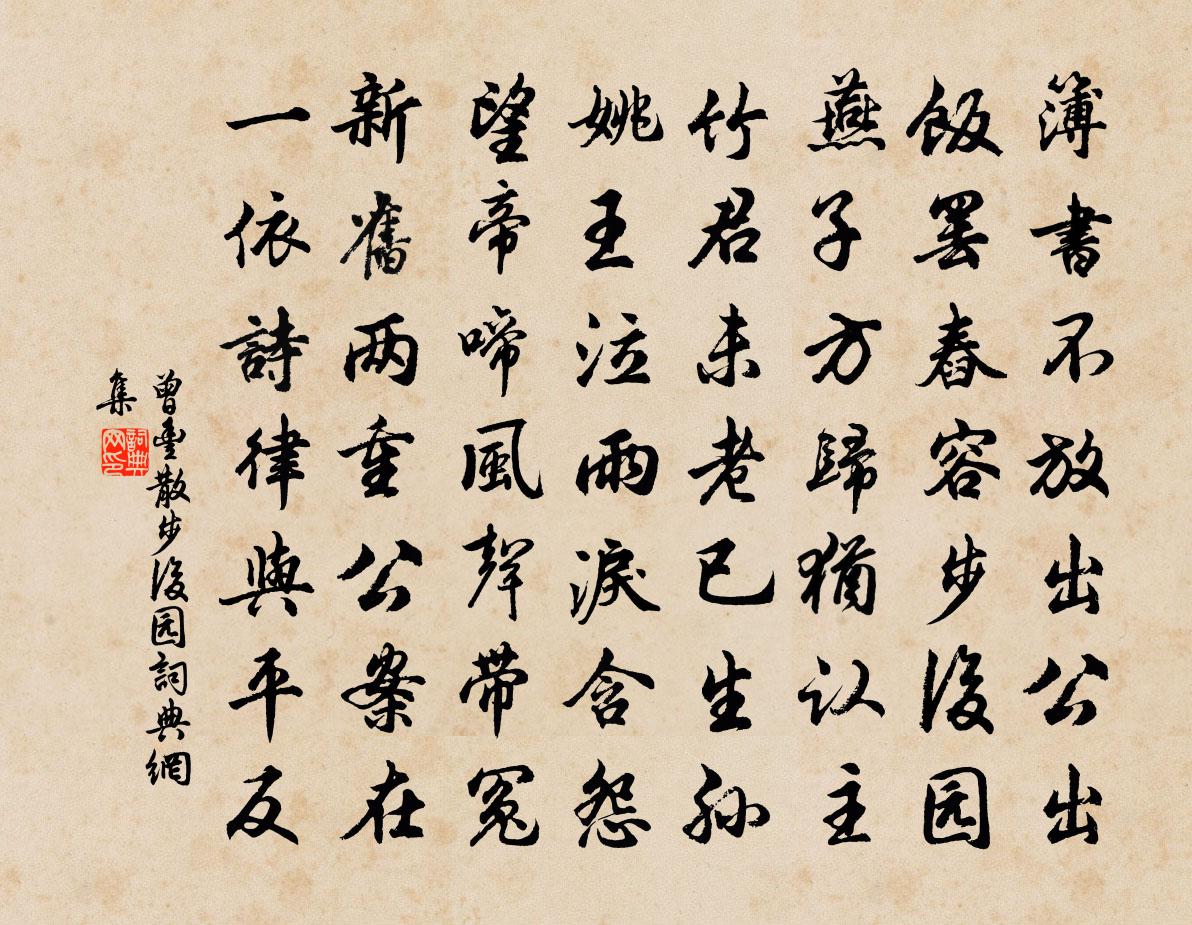 簿書不放出公出
飯罢舂容步後园
燕子方歸猶认主
竹君未老已生孙
姚王泣雨淚含怨
望帝啼風聲带冤
新舊两重公案在
一依詩律與平反
曾豊散步後园詞典網
集
詞典网印